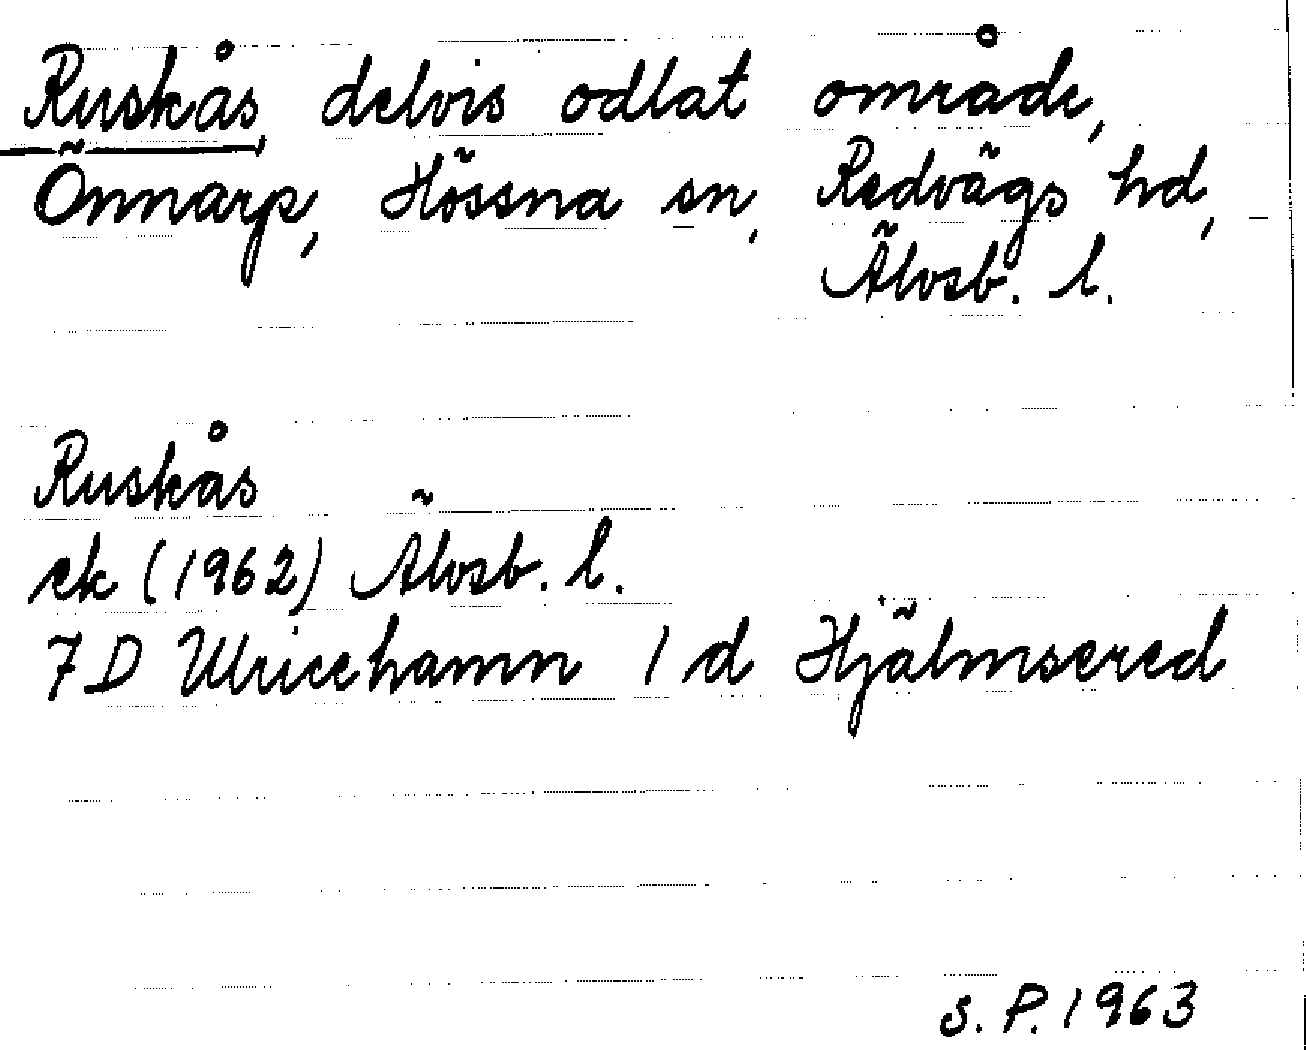 Ruskås, delvis odlat område,
Önnarp, Hössna sn, Redvägs hd,
Älvsb. l.
Ruskås
ek (1962) Älvsb. l.
7D Ulricehamn 1 d Hjälmsered
S. P. 1963